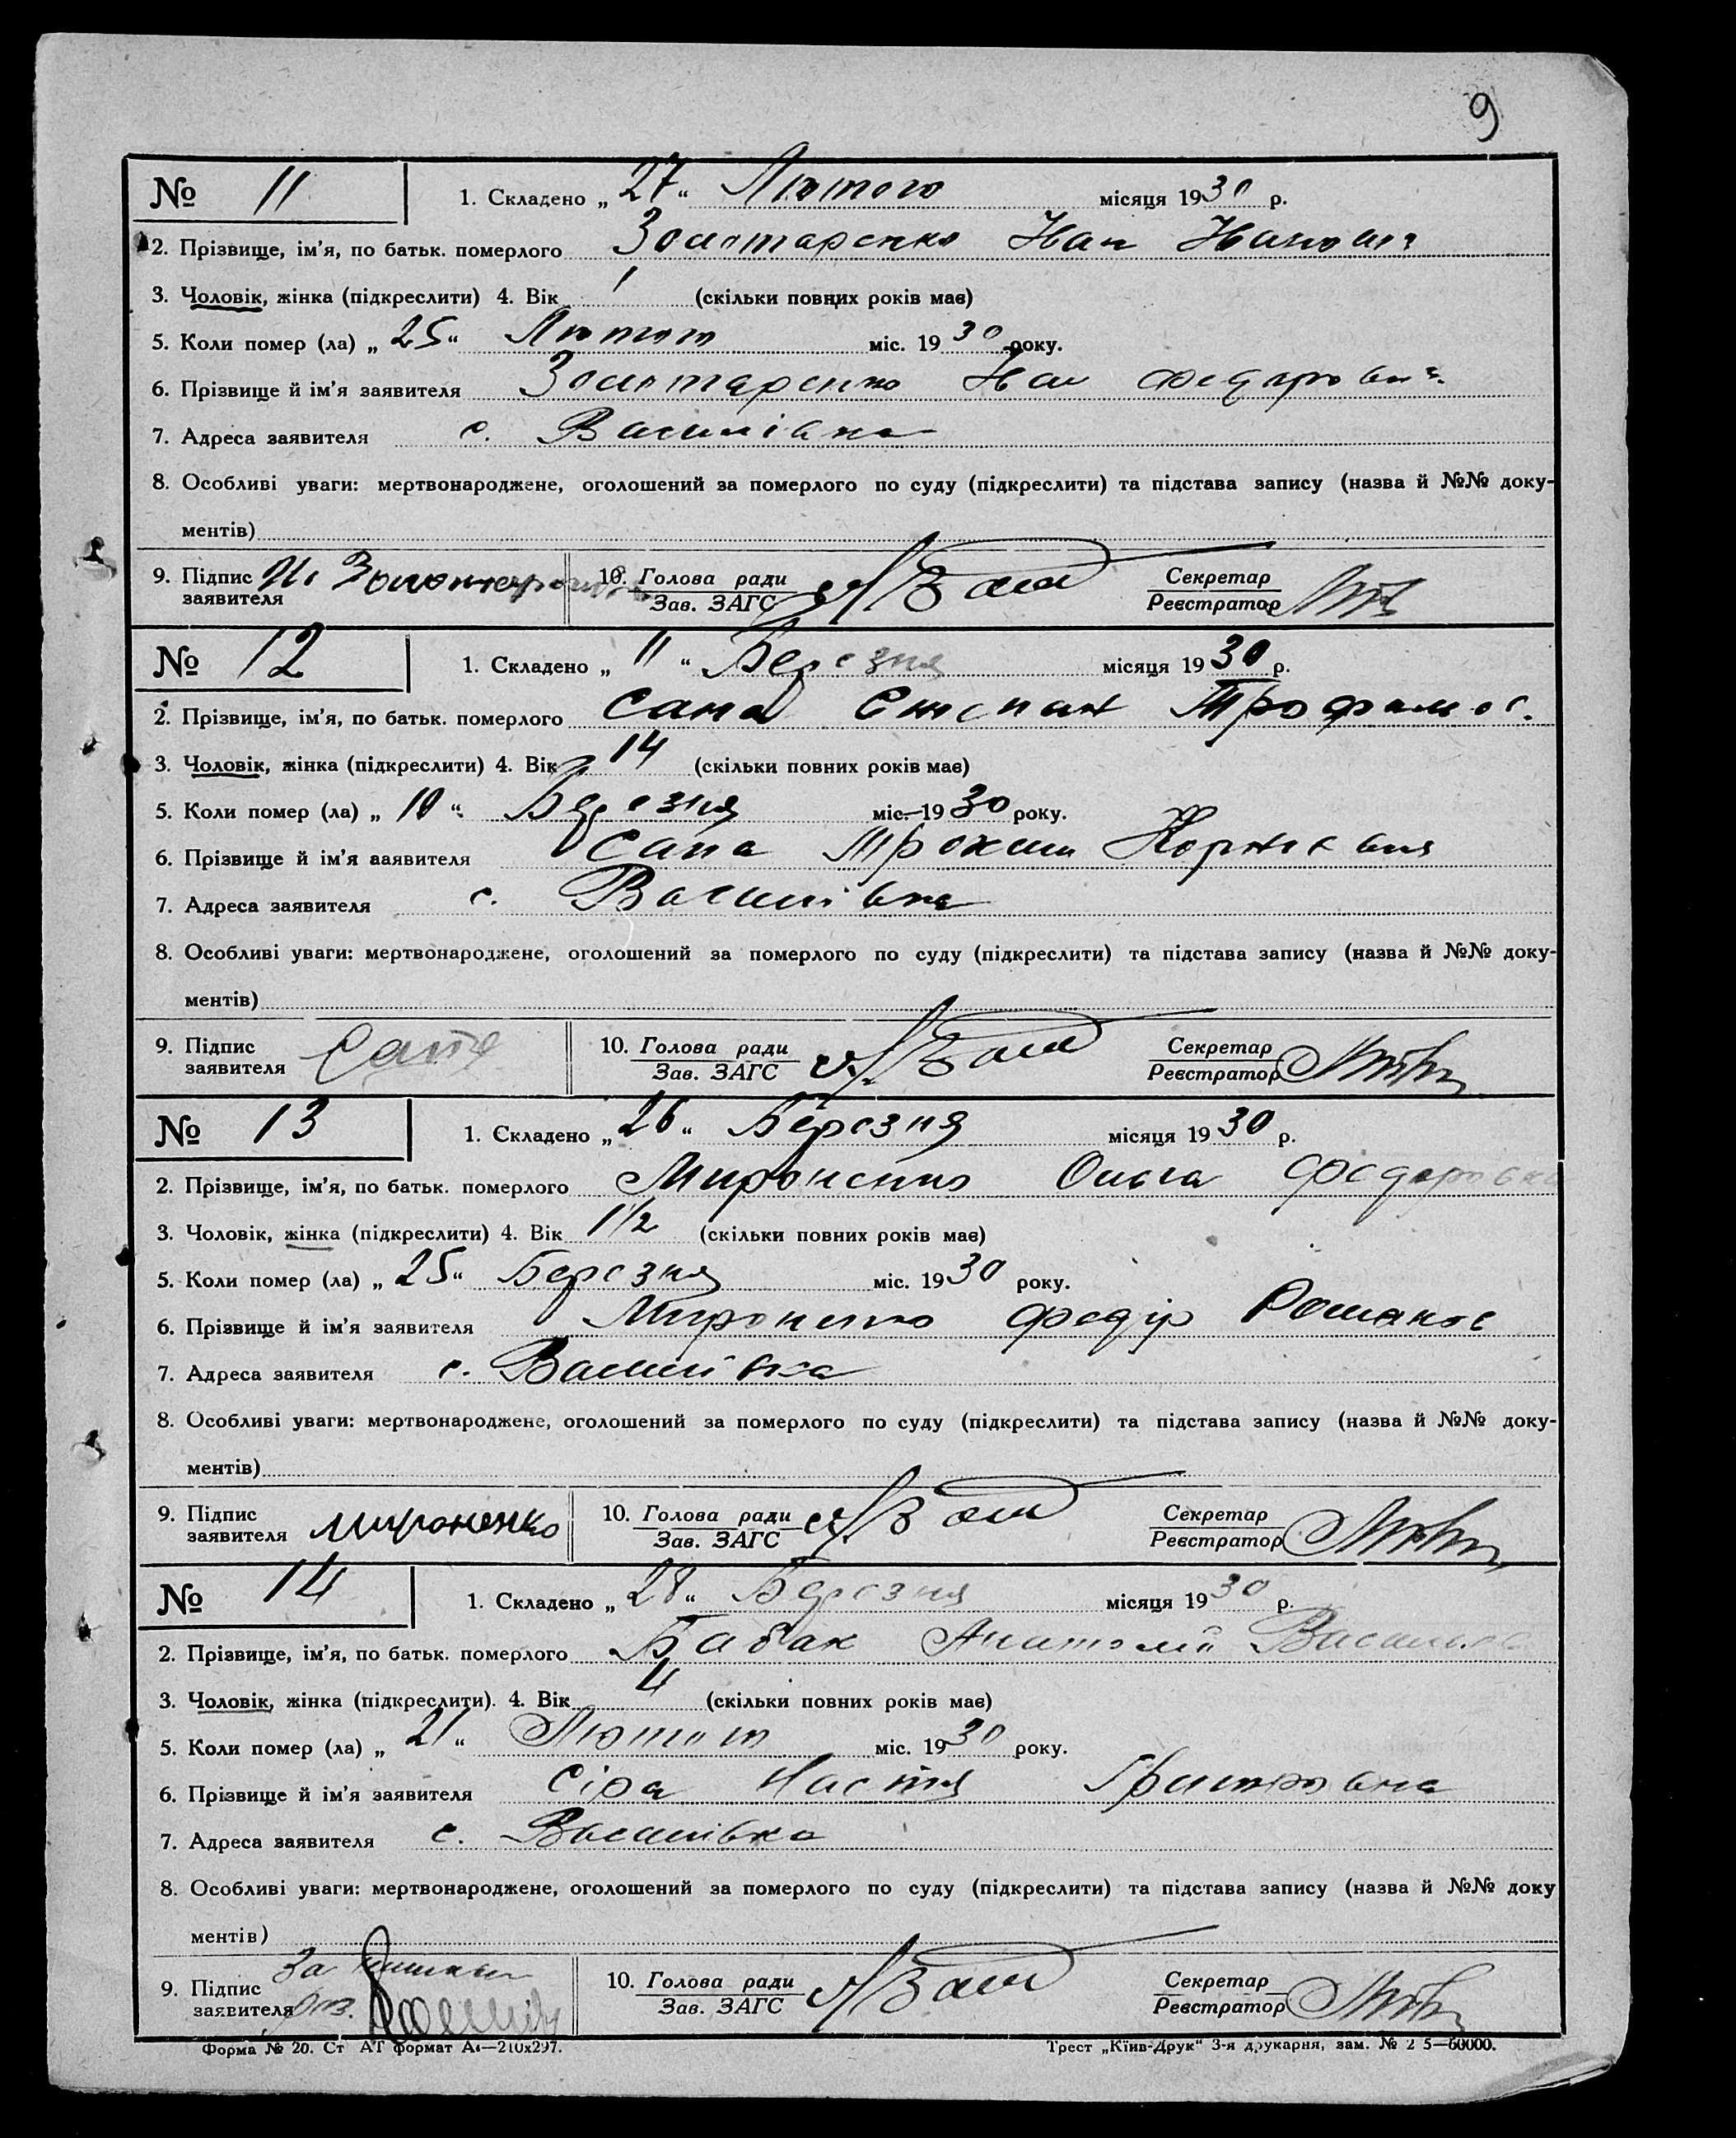 9
№ 11 1. Складено „ 27 “ Лютого місяця 1930 р.
2. Прізвище, ім’я, по батьк. померлого Золотаренко Иван
3. Чоловік, жінка (підкреслити) 4. Вік 1 (скільки повних років має)
5. Коли помер (ла) „ 25 “ Лютого міс. 1930 року.
6. Прізвище й ім’я заявителя Золотаренко Федорович
7. Адреса заявителя с. Василівка
8. Особливі уваги: мертвонароджене, оголошений за померлого по суду (підкреслити) та підстава запису (назва й №№ доку-
ментів)
9. Підпис заявителя 10. Голова ради Зав. ЗАГС Секретар Реєстратор
№ 12 1. Складено „ 11 “ Березня місяця 1930 р.
2. Прізвище, ім’я, по батьк. померлого Сапа Степан Трофимов.
3. Чоловік, жінка (підкреслити) 4. Вік 14 (скільки повних років має)
5. Коли помер (ла) „ 10 “ Березня міс. 1930 року.
6. Прізвище й ім’я заявителя Сапа
7. Адреса заявителя с. Василівка
8. Особливі уваги: мертвонароджене, оголошений за померлого по суду (підкреслити) та підстава запису (назва й №№ доку-
ментів)
9. Підпис заявителя Сапа 10. Голова ради Зав. ЗАГС Секретар Реєстратор
№ 13 1. Складено „ 26 “ Березня місяця 1930 р.
2. Прізвище, ім’я, по батьк. померлого Мироненко Ольга Федоровна
3. Чоловік, жінка (підкреслити) 4. Вік 1 1/2 (скільки повних років має)
5. Коли помер (ла) „ 25 “ Березня міс. 1930 року.
6. Прізвище й ім’я заявителя Мироненко Федір Романов
7. Адреса заявителя с. Василівка
8. Особливі уваги: мертвонароджене, оголошений за померлого по суду (підкреслити) та підстава запису (назва й №№ доку-
ментів)
9. Підпис заявителя Мироненко 10. Голова ради Зав. ЗАГС Секретар Реєстратор
№ 14 1. Складено „ 28 “ Березня місяця 1930 р.
2. Прізвище, ім’я, по батьк. померлого Бабак Анатолій
3. Чоловік, жінка (підкреслити). 4. Вік 4 (скільки повних років має)
5. Коли помер (ла) „ 21 “ Лютого міс. 1930 року.
6. Прізвище й ім’я заявителя Сіра Настя
7. Адреса заявителя с. Василівка
8. Особливі уваги: мертвонароджене, оголошений за померлого по суду (підкреслити) та підстава запису (назва й №№ доку
ментів)
9. Підпис заявителя За 10. Голова ради Зав. ЗАГС Секретар Реєстратор
Форма № 20. Ст АТ формат А4—210х297. Трест „Київ-Друк“ 3-я друкарня, зам. № 2 5—60000.